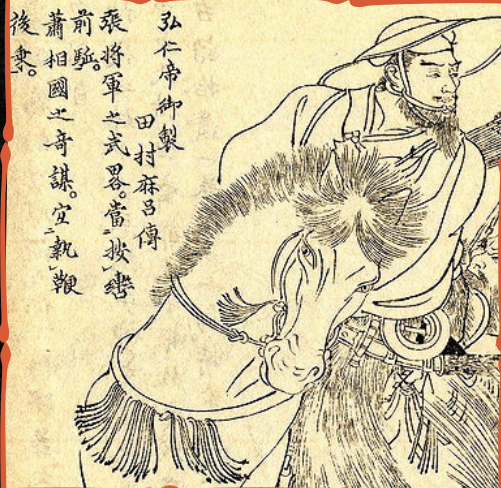 弘仁帝御製
田村麻呂傳
張將軍之武畧。當二按レ轡
前駈。
蕭相國之奇謀。宜二執レ鞭
後乘。